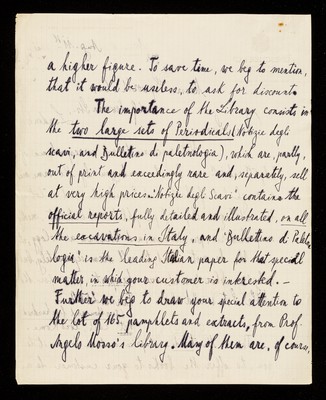 a higher figure. To save time, we beg to mention,
that it would be useless, to ask for discounts
The importance of the Library consists in
the two large sets of Periodicals (Notizie degli
scavi, and Bullettino di paletnologia), which are, partly,
out of print and exceedingly rare and, separately, sell
at very high prices. "Notizie degli Scavi" contains the
official reports, fully detailed and illustrated, on all
the excavations in Italy, and 'Bullettino di Paletno
logia' is the leading Italian paper for that speciall
matter, in which your customer is interested. –
Further we beg to draw your special attention to
the lot of 165 pamphlets and extracts, from Prof.
Angelo Mosso's library. Many of them are, of course,